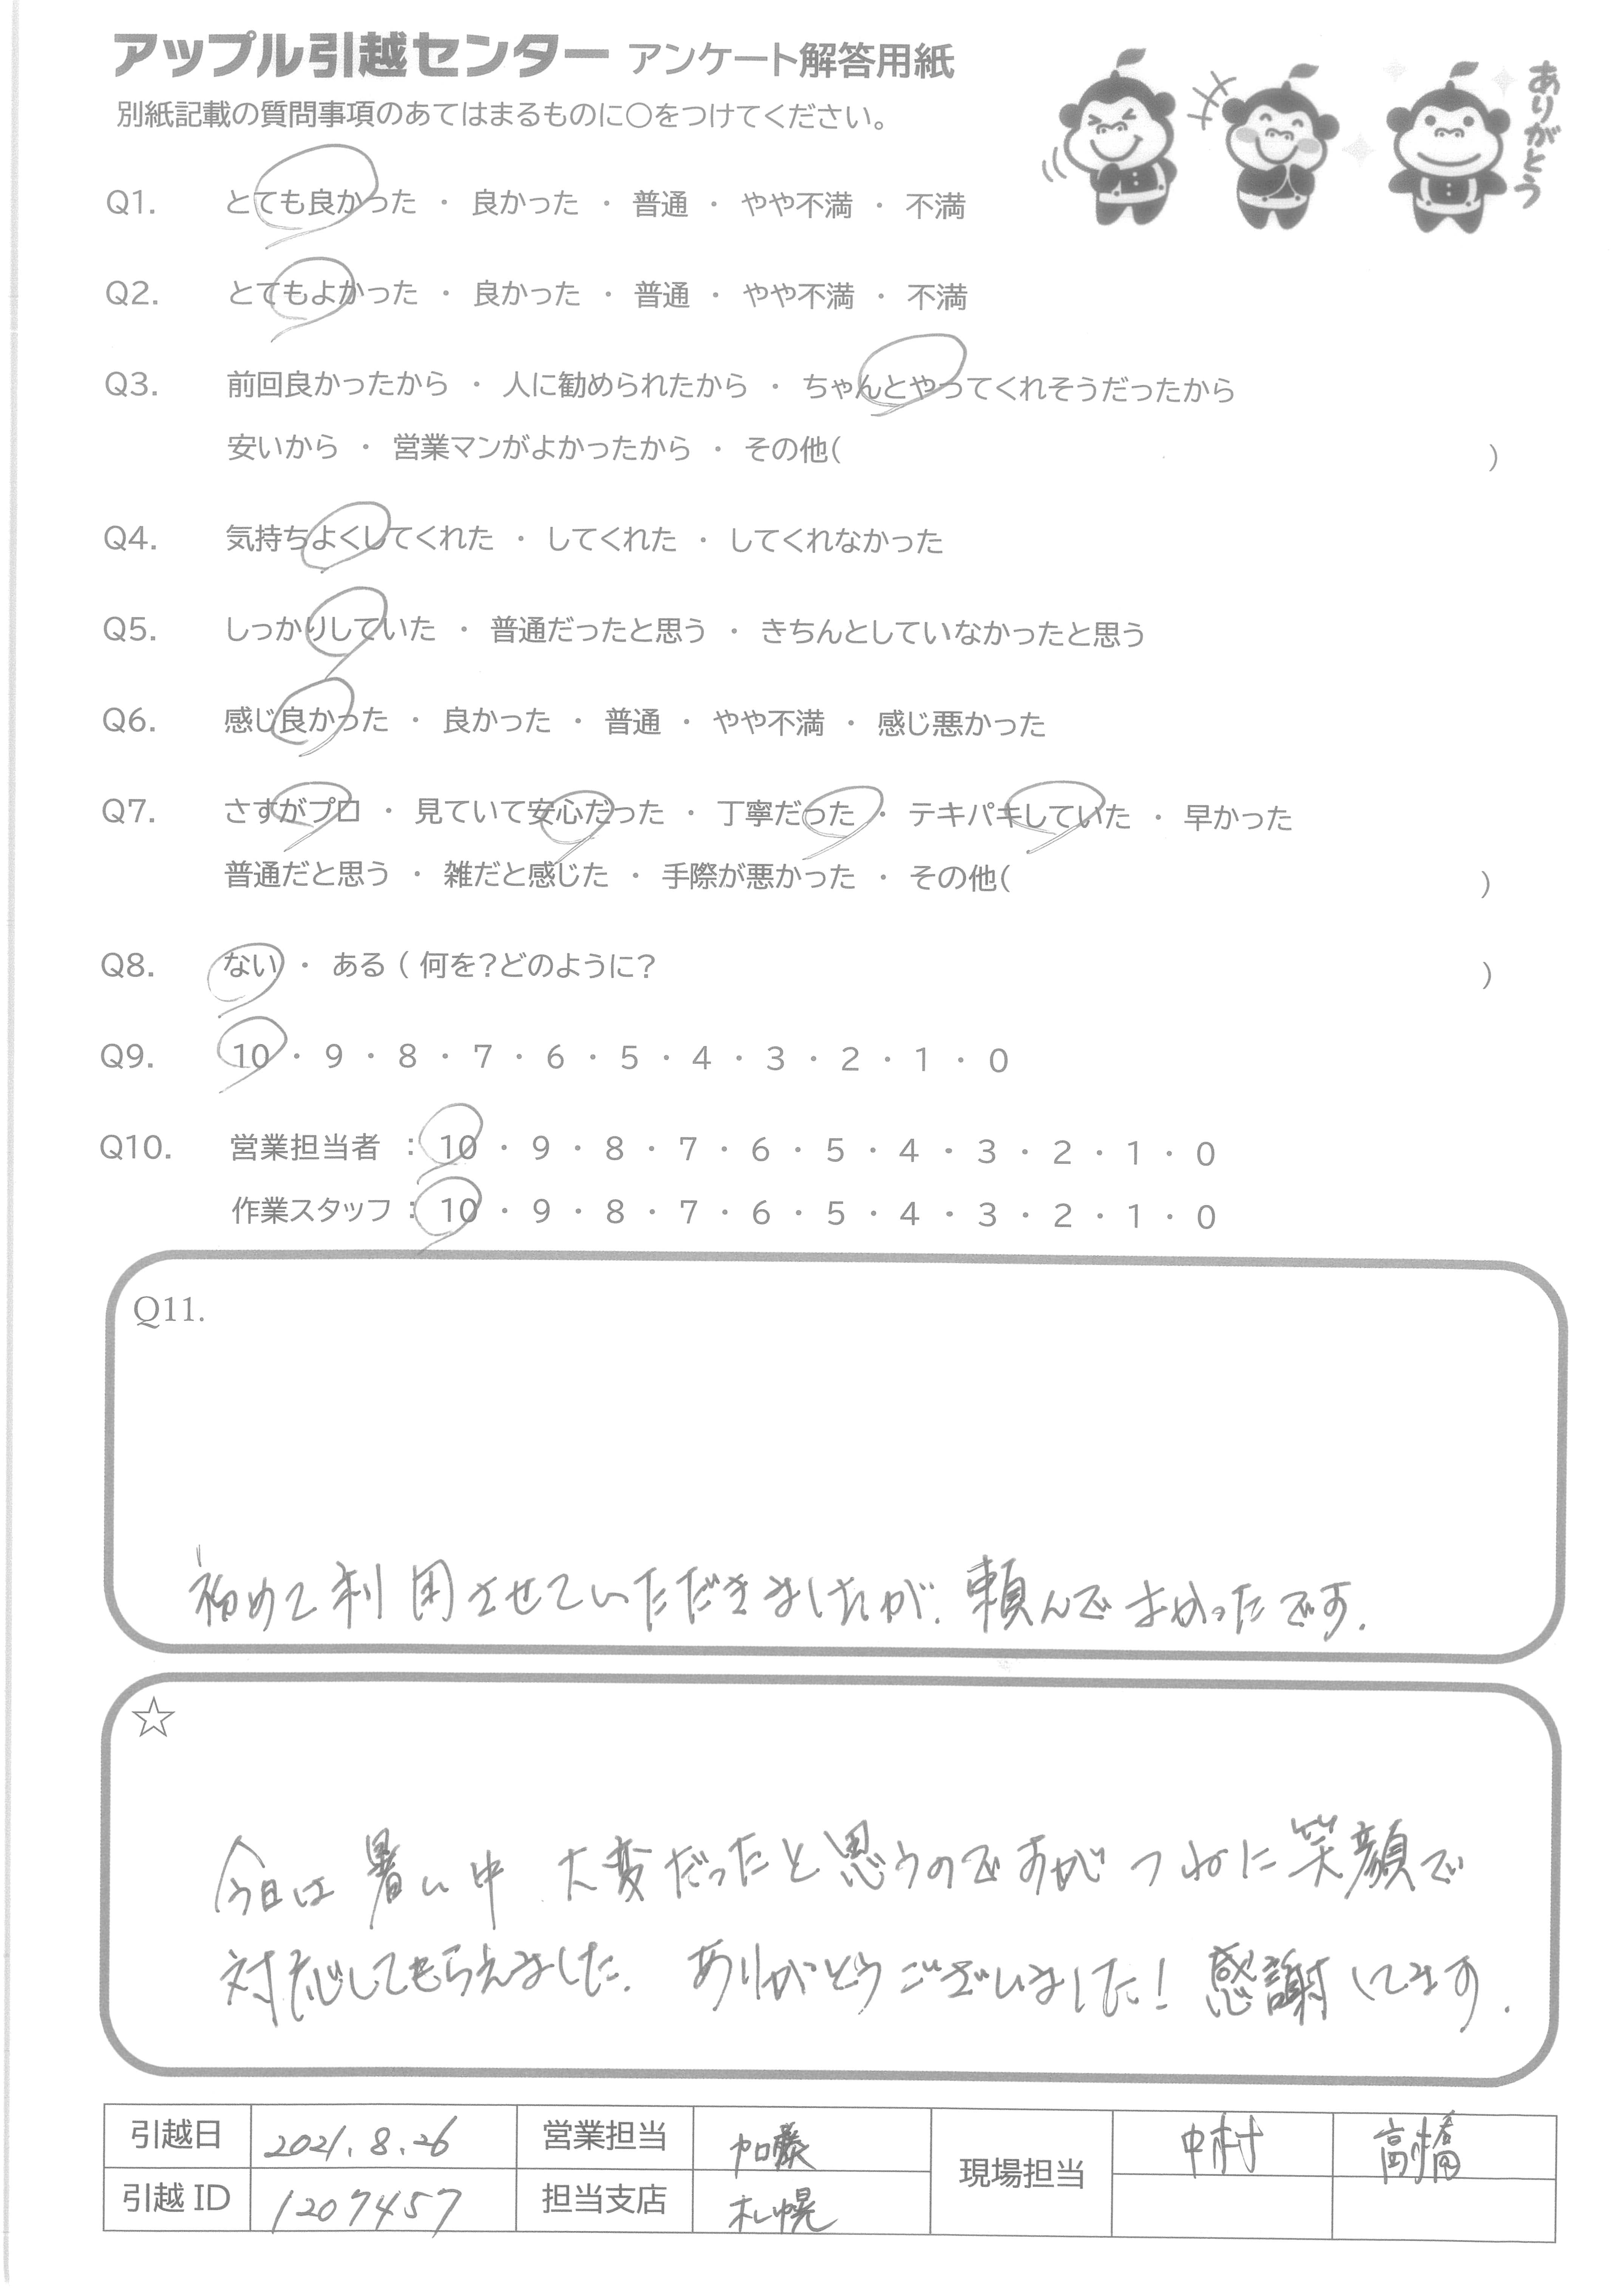 アップル引越センター アンケート解答用紙
別紙記載の質問事項のあてはまるものに○をつけてください。
ありがとう
Q1. とても良かった ・ 良かった ・ 普通 ・ やや不満 ・ 不満
Q2. とてもよかった ・ 良かった ・ 普通 ・ やや不満 ・ 不満
Q3. 前回良かったから ・ 人に勧められたから ・ ちゃんとやってくれそうだったから
安いから ・ 営業マンがよかったから ・ その他( )
Q4. 気持ちよくしてくれた ・ してくれた ・ してくれなかった
Q5. しっかりしていた ・ 普通だったと思う ・ きちんとしていなかったと思う
Q6. 感じ良かった ・ 良かった ・ 普通 ・ やや不満 ・ 感じ悪かった
Q7. さすがプロ ・ 見ていて安心だった ・ 丁寧だった ・ テキパキしていた ・ 早かった
普通だと思う ・ 雑だと感じた ・ 手際が悪かった ・ その他( )
Q8. ない ・ ある ( 何を?どのように? )
Q9. 10 ・ 9 ・ 8 ・ 7 ・ 6 ・ 5 ・ 4 ・ 3 ・ 2 ・ 1 ・ 0
Q10. 営業担当者 : 10 ・ 9 ・ 8 ・ 7 ・ 6 ・ 5 ・ 4 ・ 3 ・ 2 ・ 1 ・ 0
作業スタッフ : 10 ・ 9 ・ 8 ・ 7 ・ 6 ・ 5 ・ 4 ・ 3 ・ 2 ・ 1 ・ 0
Q11.
初めて利用させていただきましたが、頼んでよかったです。
☆
今日は暑い中 大変だったと思うのですが つねに笑顔で
対応してもらえました。 ありがとうございました! 感謝してます。
引越日 2021.8.26 営業担当 加藤 現場担当 中村 高橋
引越ID 1207457 担当支店 札幌